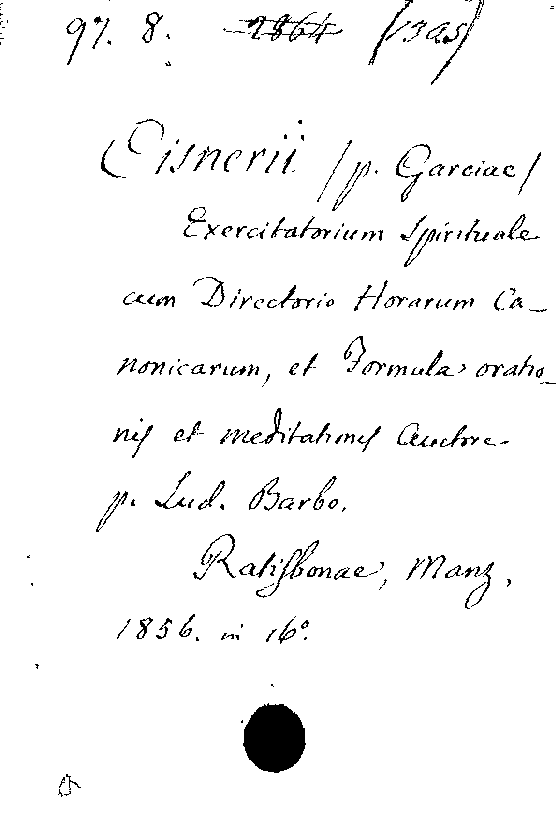 97. 8. 2864 (13as)
Cisnerii /p. Garciae/
Exercitatorium Spirituale
cum Directorio Horarum Ca-
nonicarum, et Formula oratio-
nis et meditationis Auctore
p. Lud. Barbo.
Ratisbonae, Manz,
1856. in 16°.